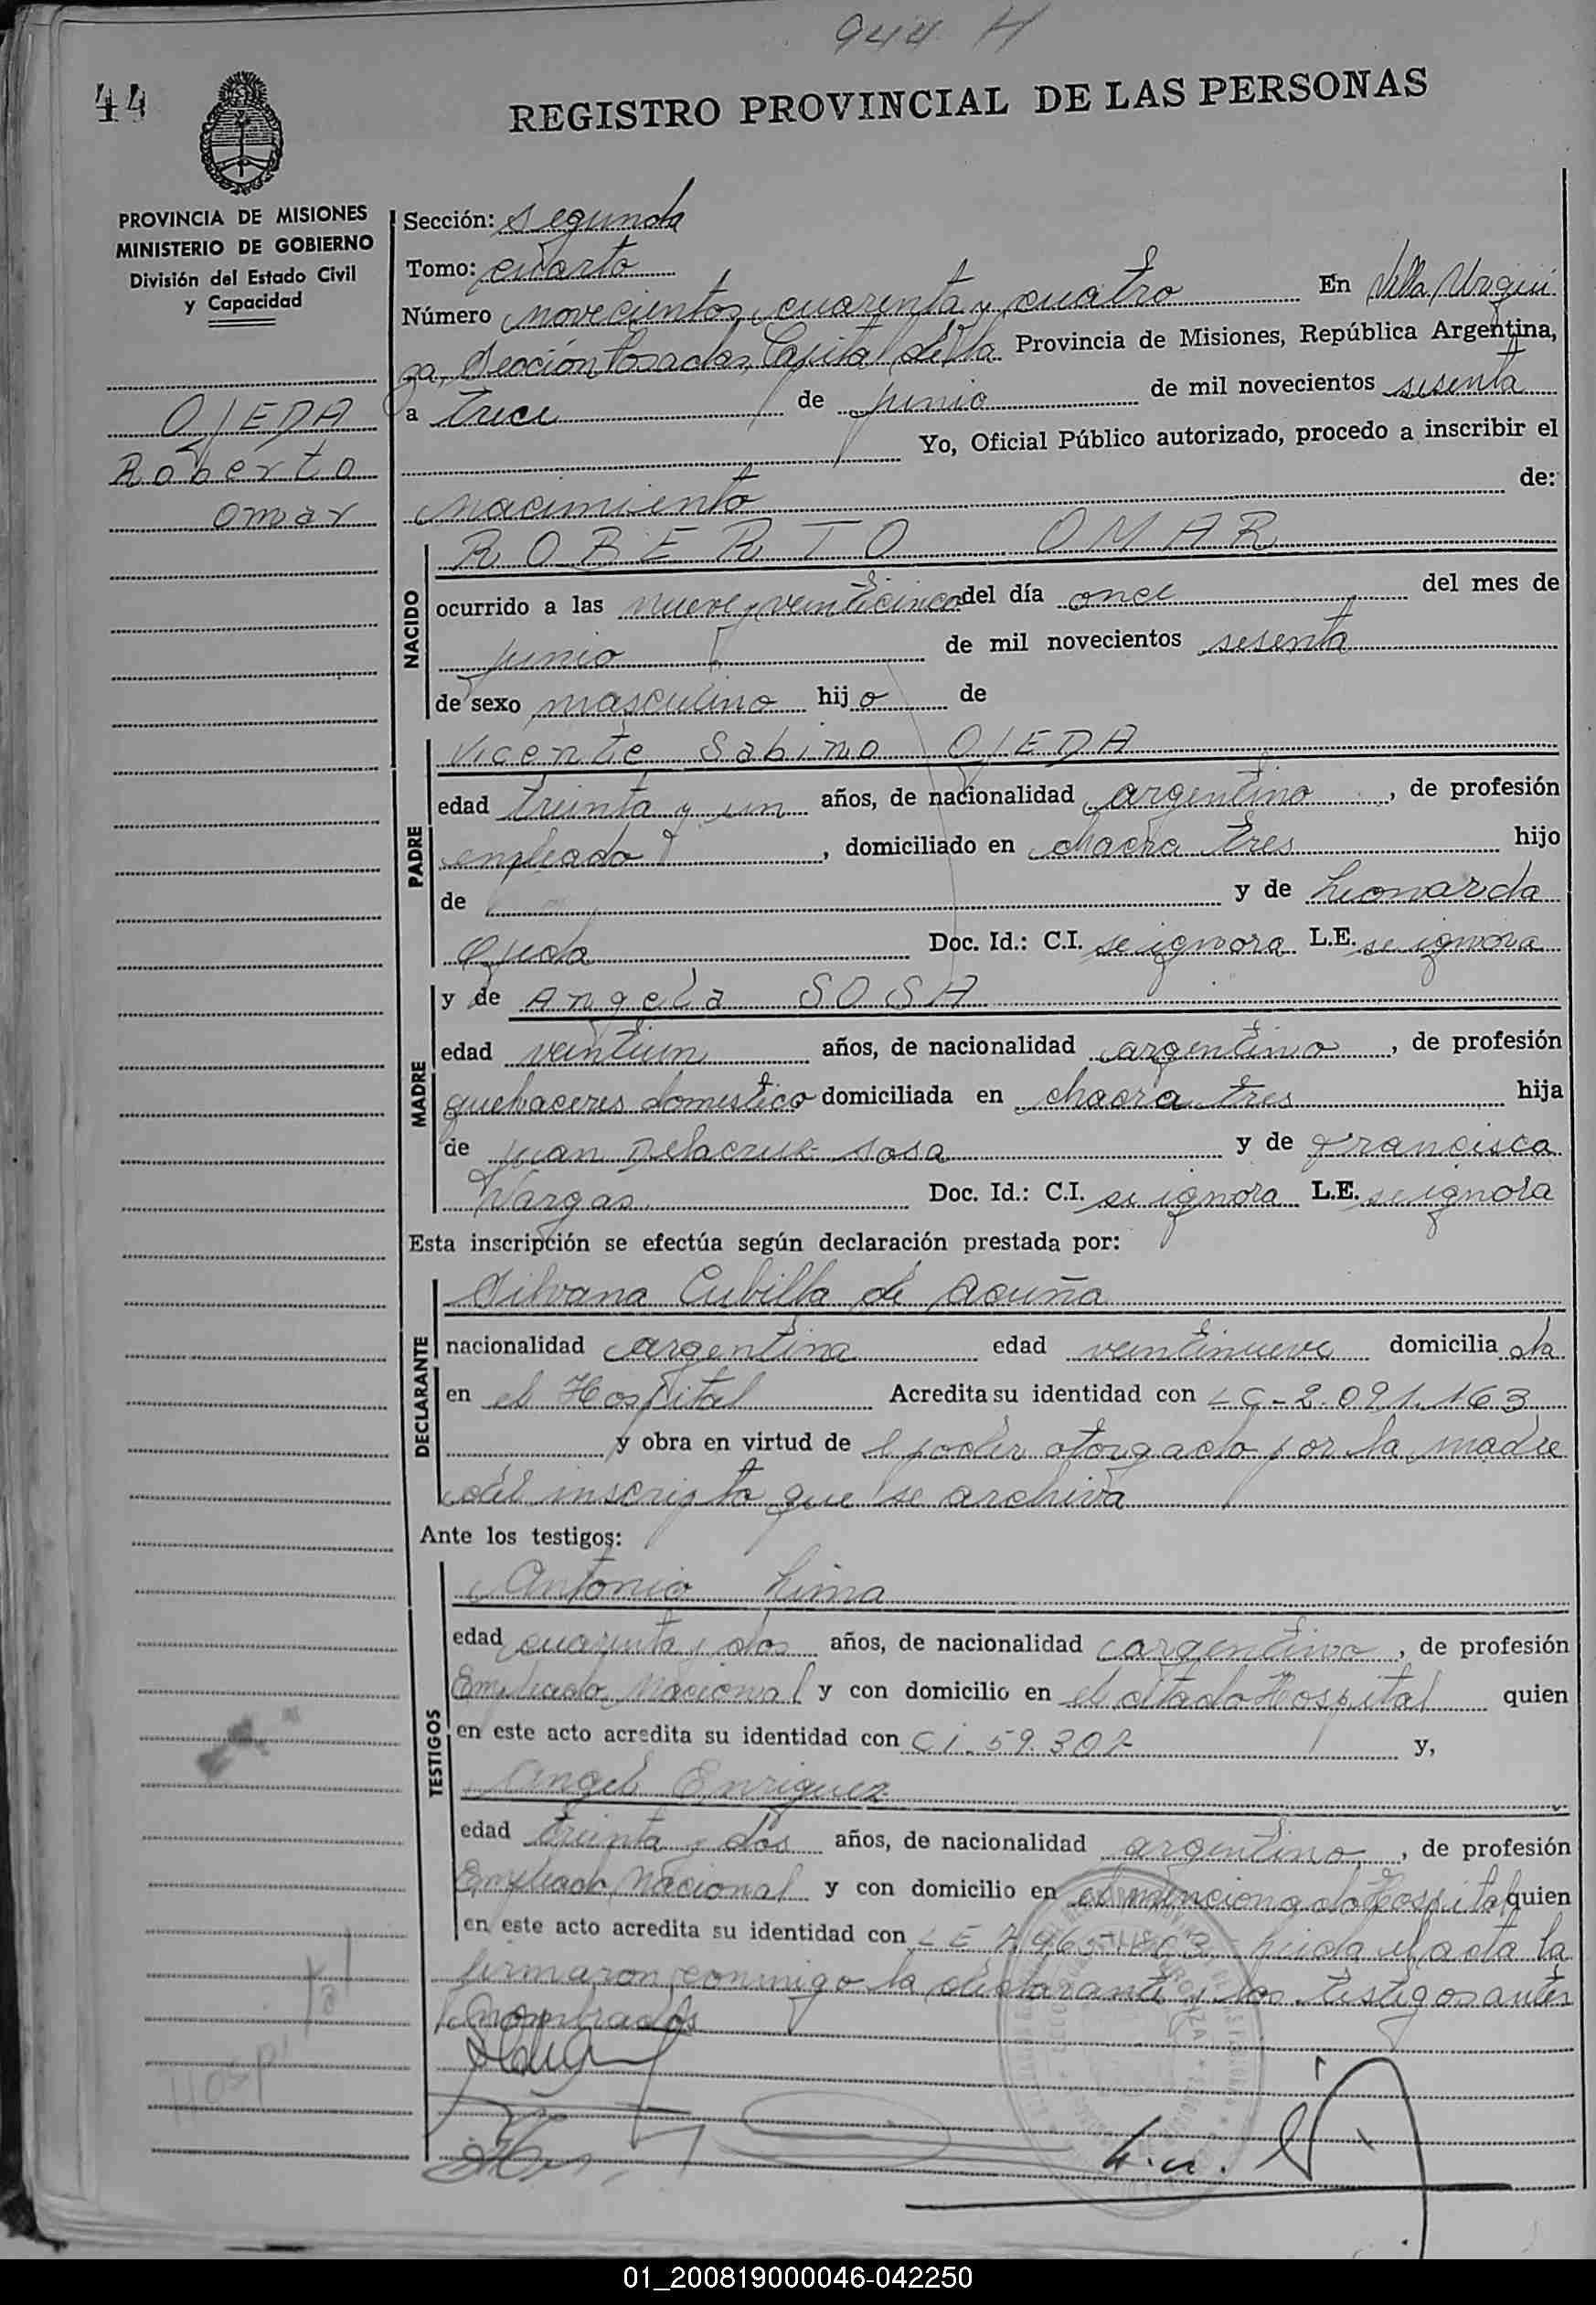 944 H
44
REGISTRO PROVINCIAL DE LAS PERSONAS
PROVINCIA DE MISIONES
MINISTERIO DE GOBIERNO
División del Estado Civil
y Capacidad
OJEDA
Roberto
omar
Sección: segunda
Tomo: cuarto
Número novecientos cuarenta y cuatro En Villa Urqui
za, Sección Posadas, Capital de la Provincia de Misiones, República Argentina,
a trece de junio de mil novecientos sesenta
Yo, Oficial Público autorizado, procedo a inscribir el
nacimiento de:
NACIDO
ROBERTO OMAR
ocurrido a las nueve y veinticinco del día once del mes de
junio de mil novecientos sesenta
de sexo masculino hijo de
PADRE
Vicente Sabino OJEDA
edad treinta y un años, de nacionalidad argentino, de profesión
empleado, domiciliado en chacra tres hijo
de y de Leonarda
Ojeda Doc. Id.: C.I. se ignora L.E. se ignora
MADRE
y de Angela SOSA
edad veintiun años, de nacionalidad argentino, de profesión
quehaceres domestico domiciliada en chacra tres hija
de Juan Delacruz Sosa y de Francisca
Vargas Doc. Id.: C.I. se ignora L.E. se ignora
Esta inscripción se efectúa según declaración prestada por:
DECLARANTE
Silvana Cubilla de Acuña
nacionalidad argentina edad veintinueve domiciliada
en el Hospital Acredita su identidad con LC-2.091.163
y obra en virtud de l poder otorgado por la madre
del inscripto que se archiva
Ante los testigos:
TESTIGOS
Antonio Lima
edad cuarenta y dos años, de nacionalidad argentino, de profesión
Empleado Nacional y con domicilio en el citado Hospital quien
en este acto acredita su identidad con CI. 59.302 y,
Angel Enriquez
edad treinta y dos años, de nacionalidad argentino, de profesión
Empleado Nacional y con domicilio en el mencionado Hospital quien
en este acto acredita su identidad con LE leida el acta la
firmaron conmigo la declarante y los testigos antes
nombrados
Hosp
01_200819000046-042250